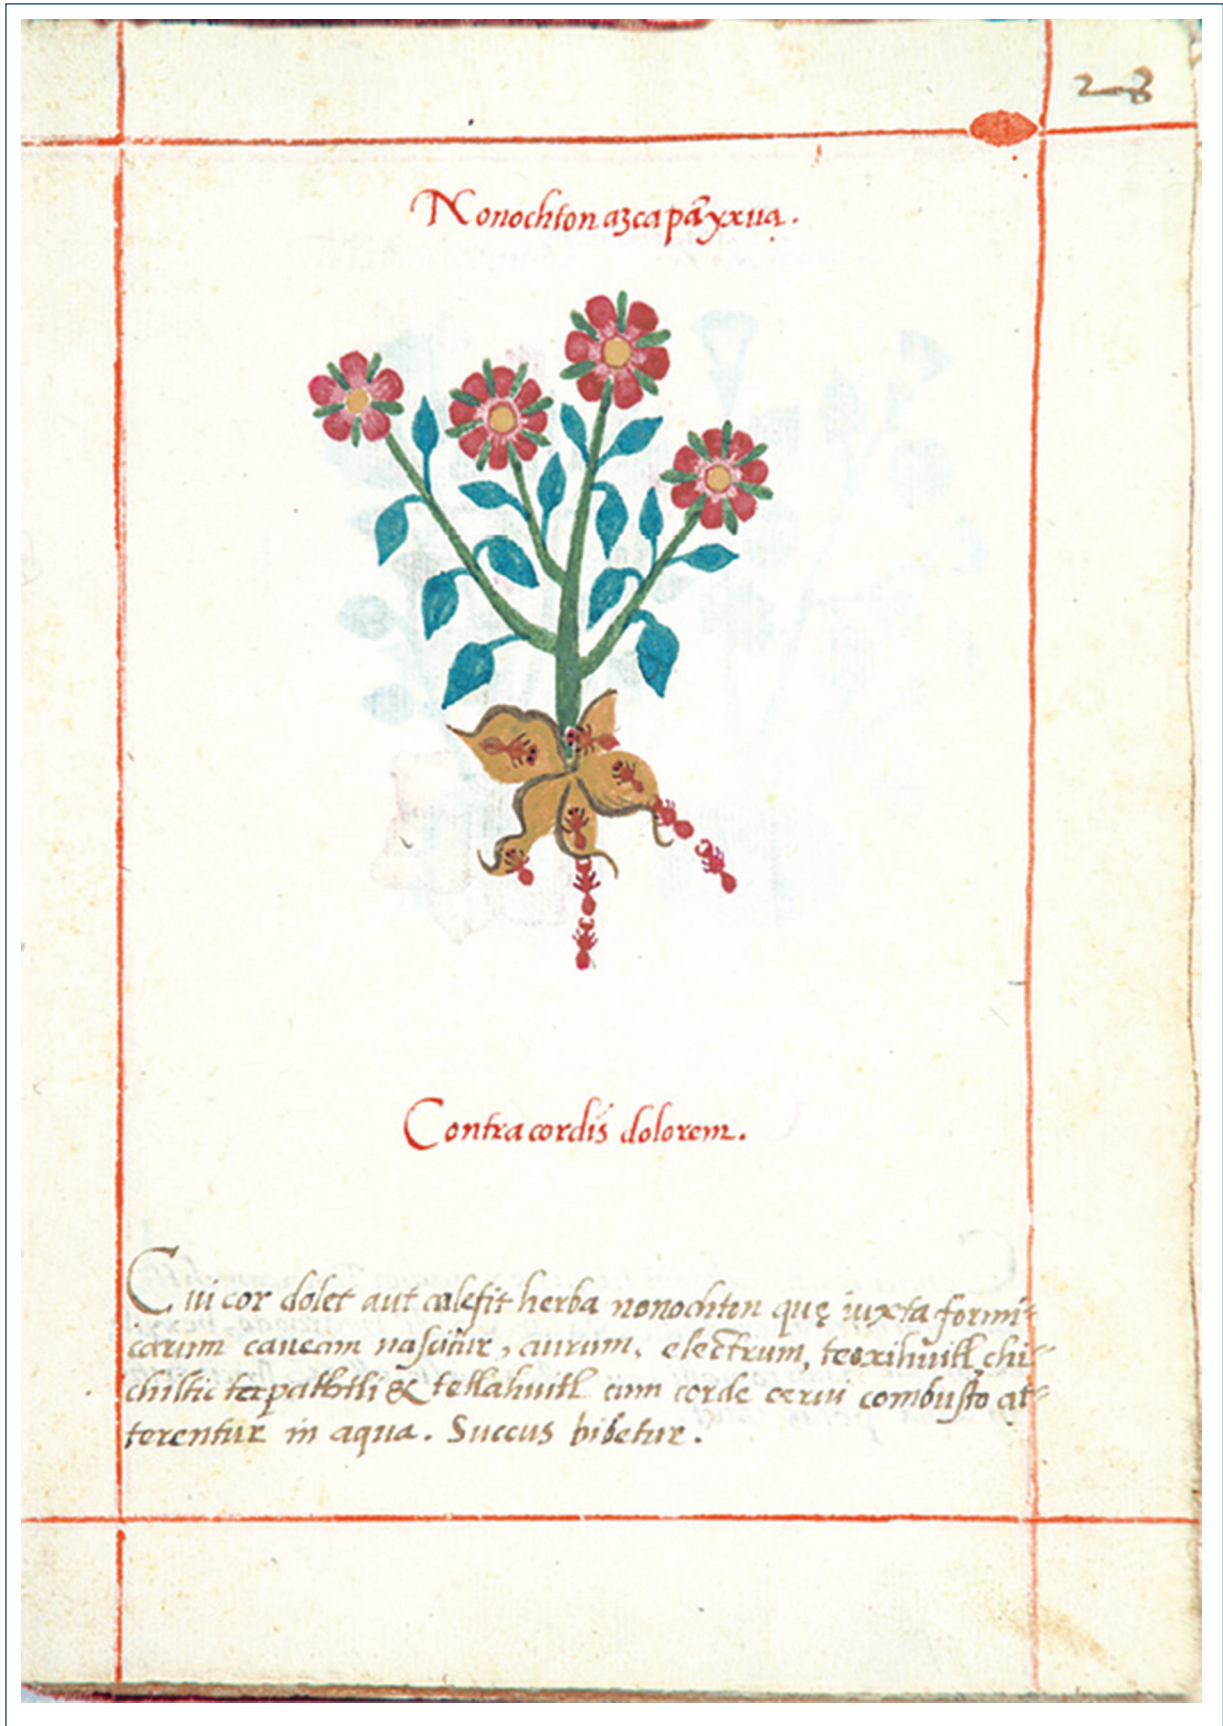 28
Nonochton azcapāyxua.
Contra cordis dolorem.
Cui cor dolet aut calefit herba nonochton quę iuxta formi=
carum caueam nascitur, aurum, electrum, teoxihuitl, chi=
chiltic tapachtli & tetlahuitl cum corde cerui combusto at=
terentur in aqua. Succus bibetur.